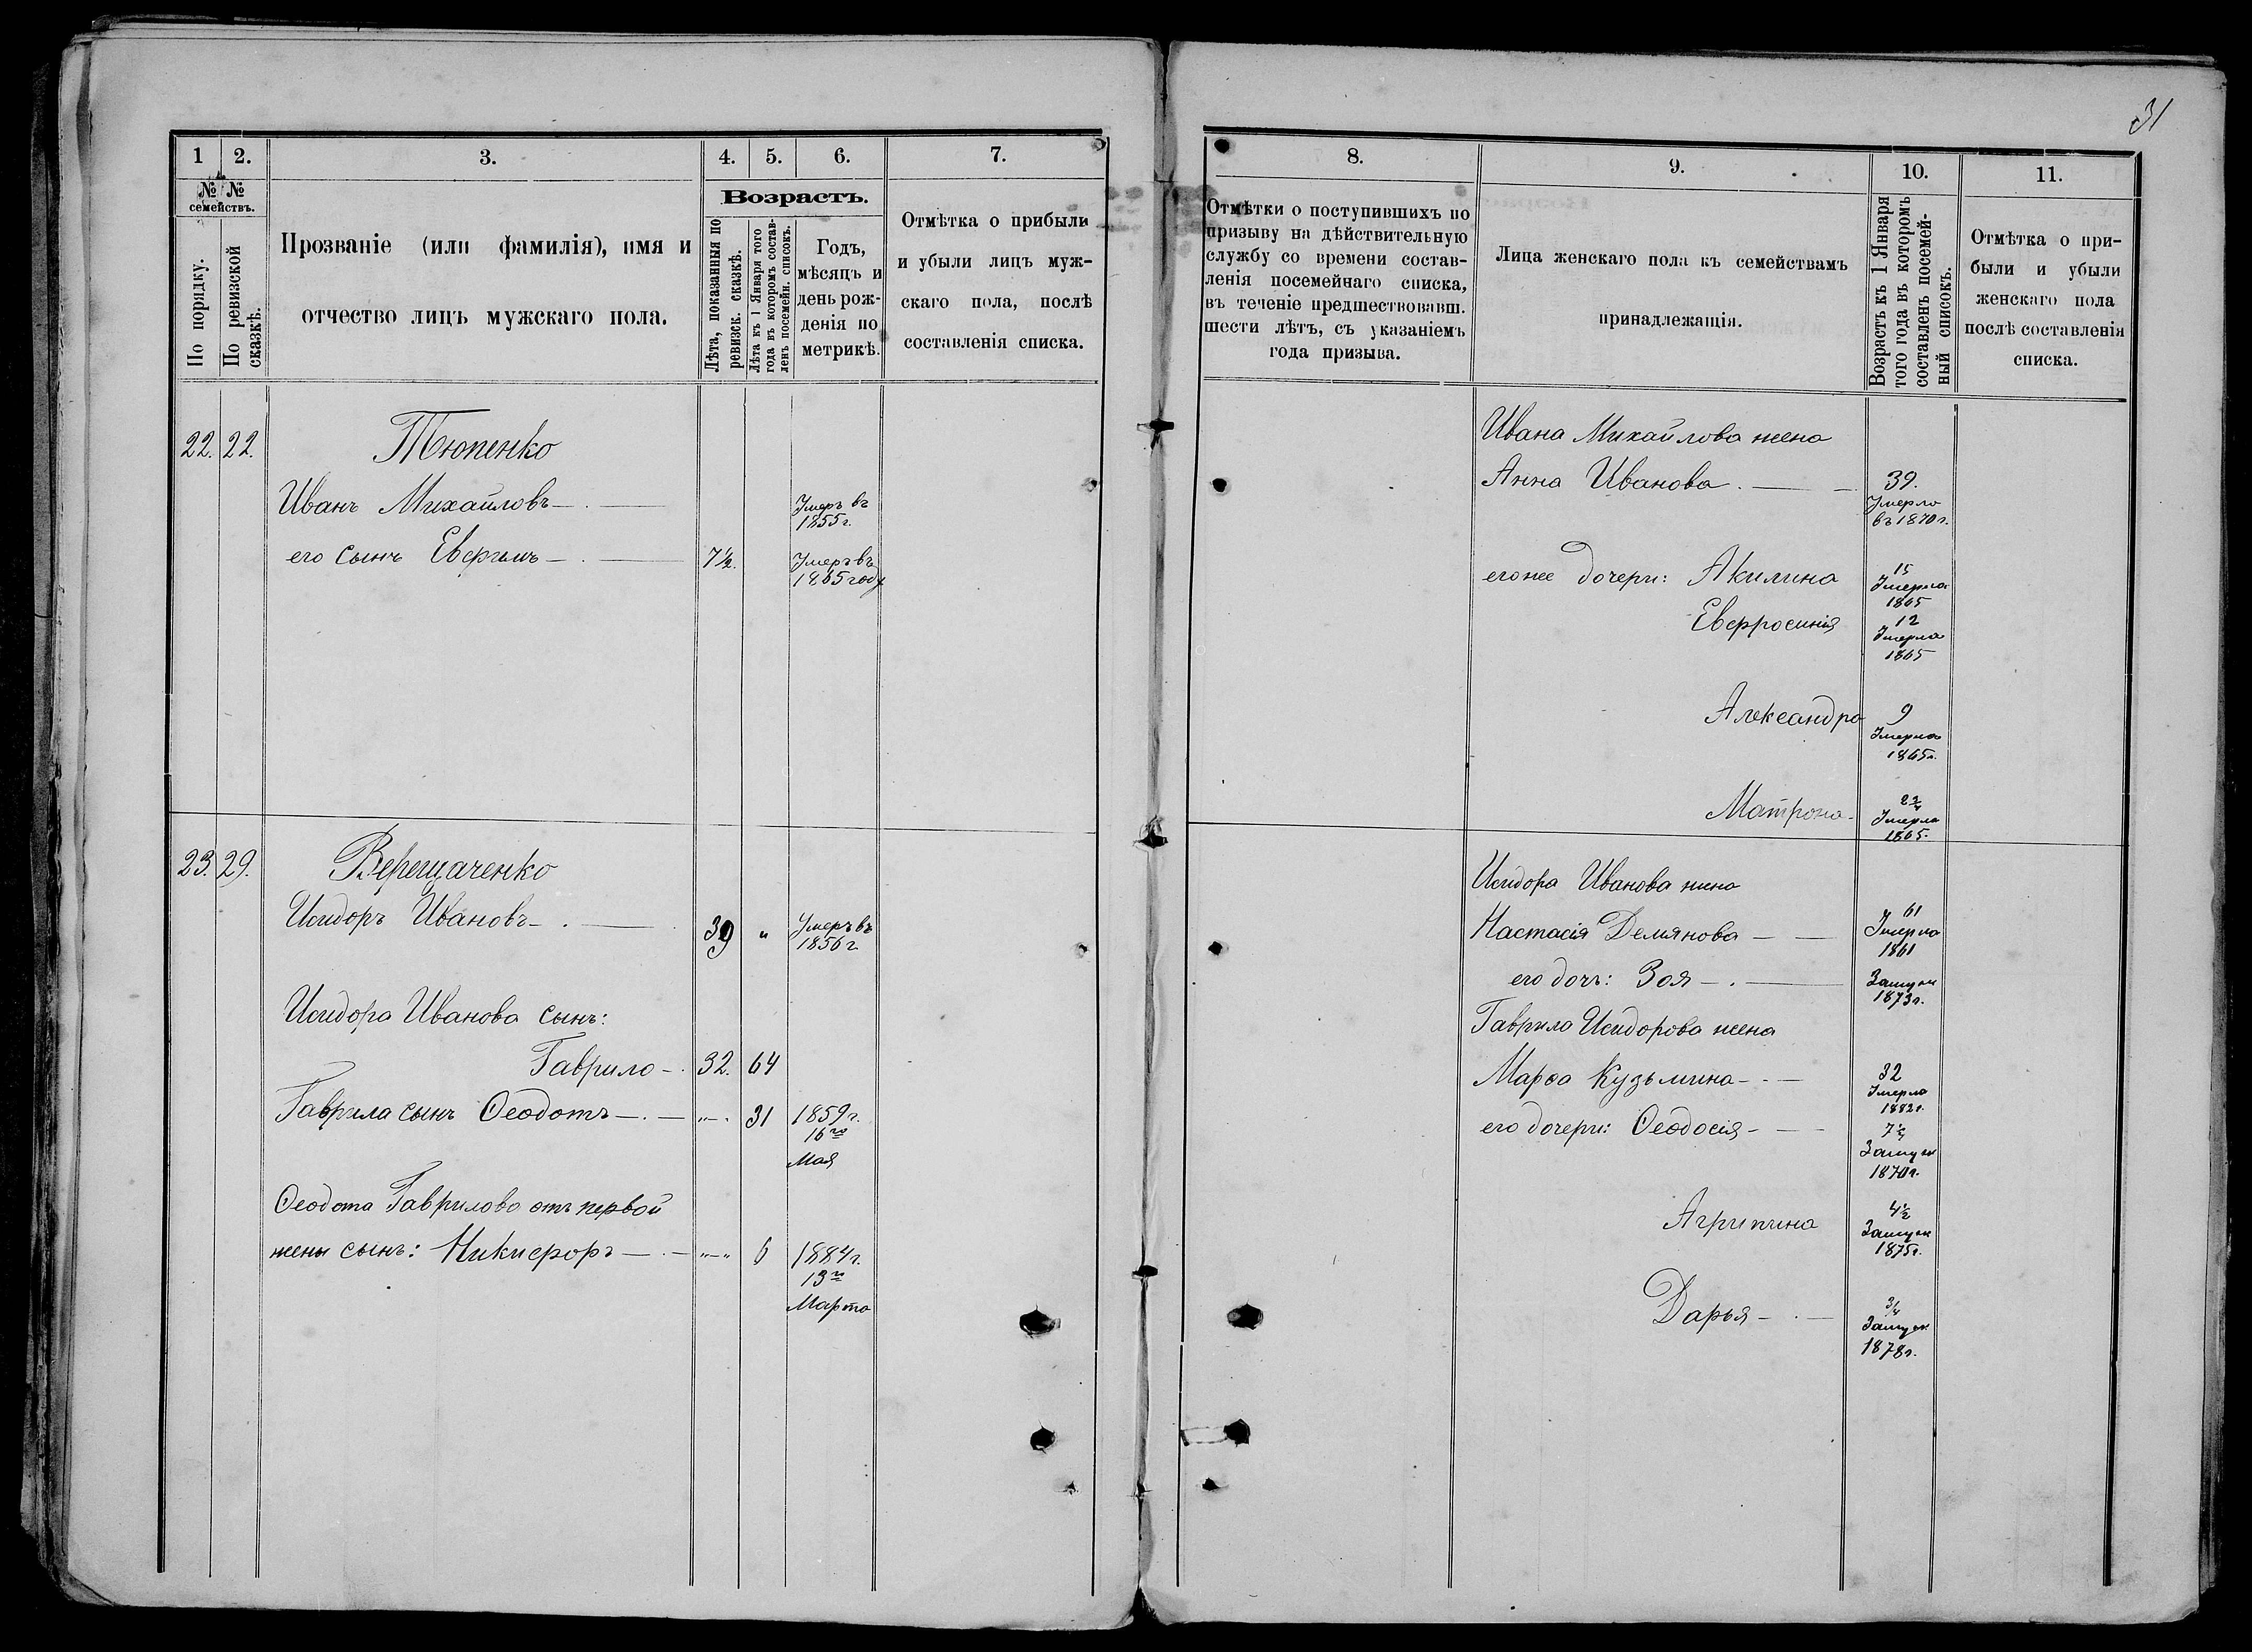 31
1
2.
3.
4.
5.
6.
7.
№ №
семействъ.
По порядку.
По ревизской
сказкѣ.
Прозваніе (или фамилія), имя и
отчество лицъ мужскаго пола.
Возрастъ.
Лѣта, показанныя по
ревизск. сказкѣ.
Лѣта къ 1 Января того
года въ которомъ состав-
ленъ посемейн. списокъ.
Годъ,
мѣсяцъ и
день рож-
денія по
метрикѣ.
Отмѣтка о прибыли
и убыли лицъ муж-
скаго пола, послѣ
составленія списка.
22. 22. Тюпенко
Иванъ Михайловъ — . — Умеръ въ
1855 г.
его сынъ Евфимъ — . — 7½. Умеръ въ
1865 году
23. 29. Верещаченко
Исидоръ Ивановъ — . — 39 „ Умеръ въ
1856 г
Исидора Иванова сынъ:
Гаврило — . 32. 64
Гаврила сынъ Ѳеодотъ — . — „ — . 31 1859 г.
16го
Мая
Ѳеодота Гаврилова отъ первой
жены сынъ: Никифоръ — . — „ — „ 6 1884 г.
13го
Марта
8.
9.
10.
11.
Отмѣтки о поступившихъ по
призыву на дѣйствительную
службу со времени состав-
ленія посемейнаго списка,
въ теченіе предшествовавш.
шести лѣтъ, съ указаніемъ
года призыва.
Лица женскаго пола къ семействамъ
принадлежащія.
Возрастъ къ 1 Января
того года въ которомъ
составленъ посемей-
ный списокъ.
Отмѣтка о при-
были и убыли
женскаго пола
послѣ составленія
списка.
Ивана Михайлова жена
Анна Иванова . — 39.
Умерла
въ 1870 г.
его же дочери: Акилина 15
Умерла
1865
Евфросинія 12
Умерла
1865
Александра 9
Умерла
1865 г.
Матрона — Умерла
1865.
Исидора Иванова жена
Настасія Демянова — — 61
Умерла
1861
его дочь: Зоя — . — Замуж
1873 г.
Гаврила Исидорова жена
Марѳа Кузьмина — . — 32
Умерла
1882 г.
его дочери: Ѳеодосія — — 7½
Замуж
1870 г.
Агрипина 4½
Замуж
1875 г.
Дарья — . — 3/4
Замуж
1878 г.